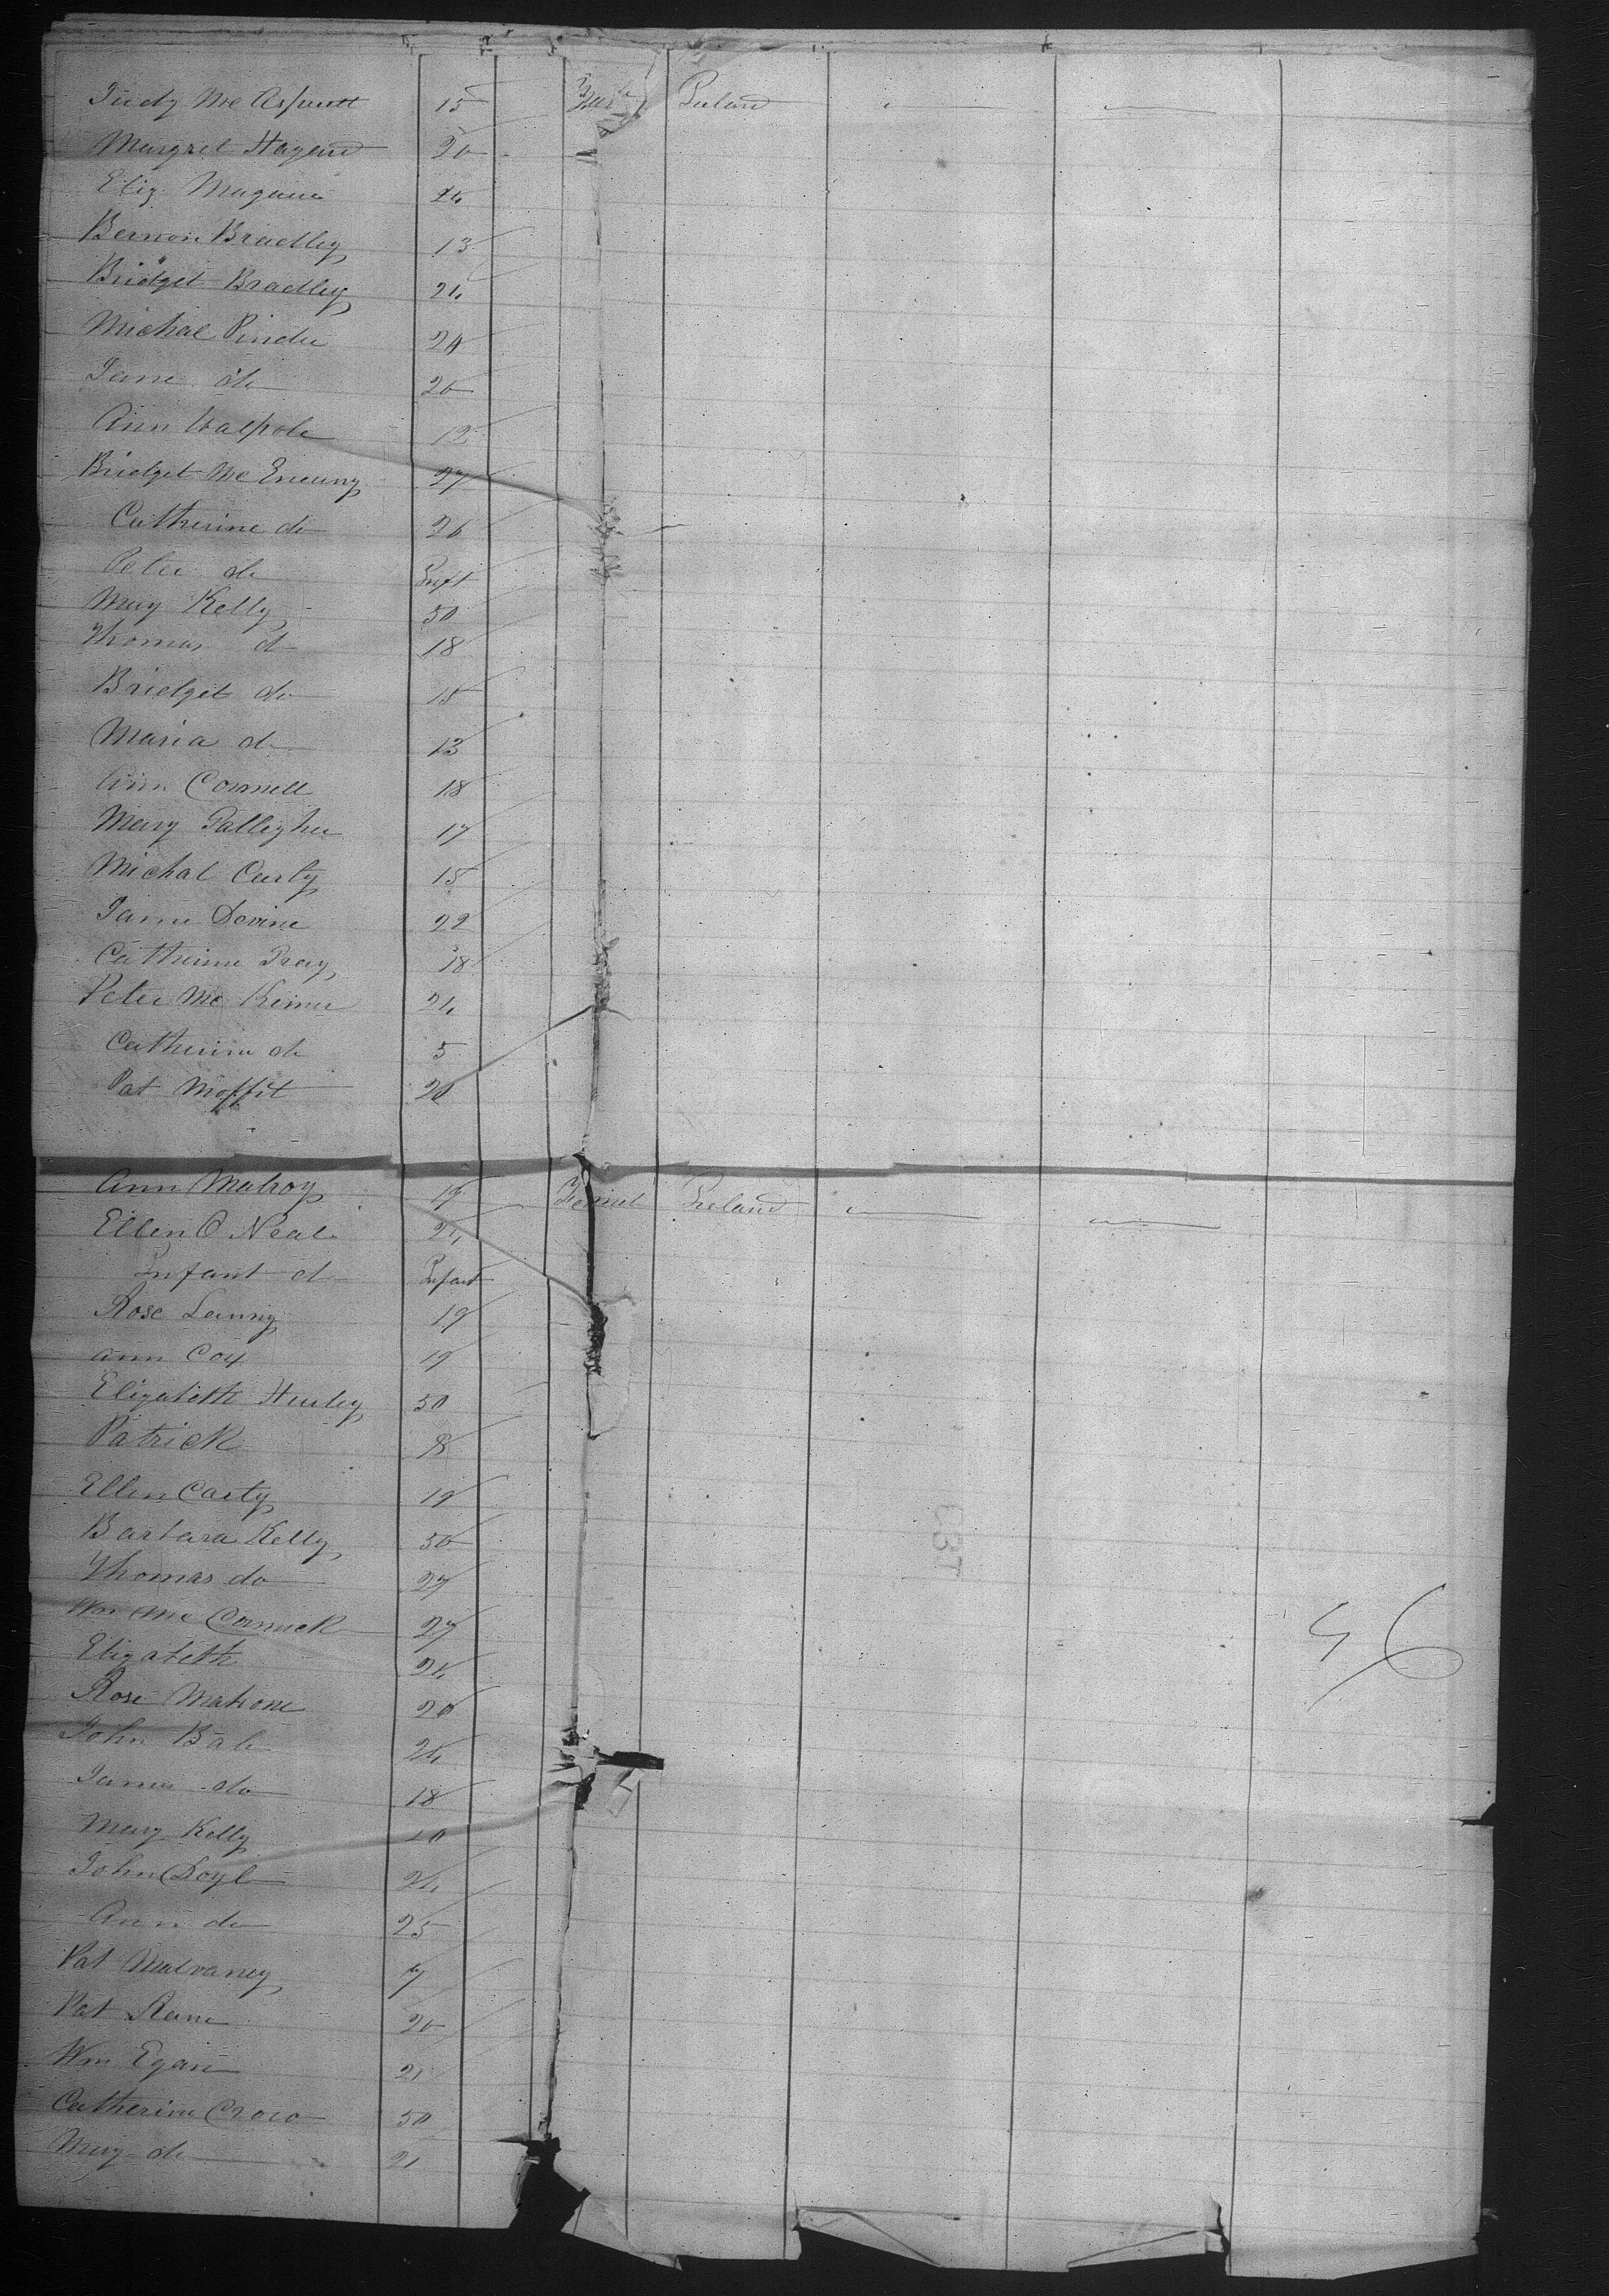 Judy Mc 15 Ireland
Margret Hagend 20
Eliz Maguire 24
Bernon Bradley 13
Bridget Bradley 24
Michael Pinder 20
Jane do 20
Ann Walpole 12
Bridget Mc Eneuny 27
Catherine do 26
Peter do Inft
Mary Kelly 50
Thomas do 18
Bridget do 15
Maria do 13
Ann Connell 18
Mary Gallegher 17
Michal Curly 15
Jame Devine 22
Catherine Gray 18
Peter Mc Kinnu 24
Catherine do 5
Pat Moffit 20
Ann Mulroy 19 Ireland
Ellen O Neal 24
Infant do Infant
Rose Lanny 19
Ann Coy 19
Elizabeth Hurley 50
Patrick 8
Ellen Carty 19
Barbara Kelly 50
Thomas do 27
Wm Mc Cormick 27
Elizabeth 24
Rose Mahone 20
John Bale 24
James do 18
Mary Kelly
John Doyle 24
Ann do 25
Pat Mulvaney 7
Pat Kane 20
Wm Egan 21
Catherine Crow 50
Mary do 21